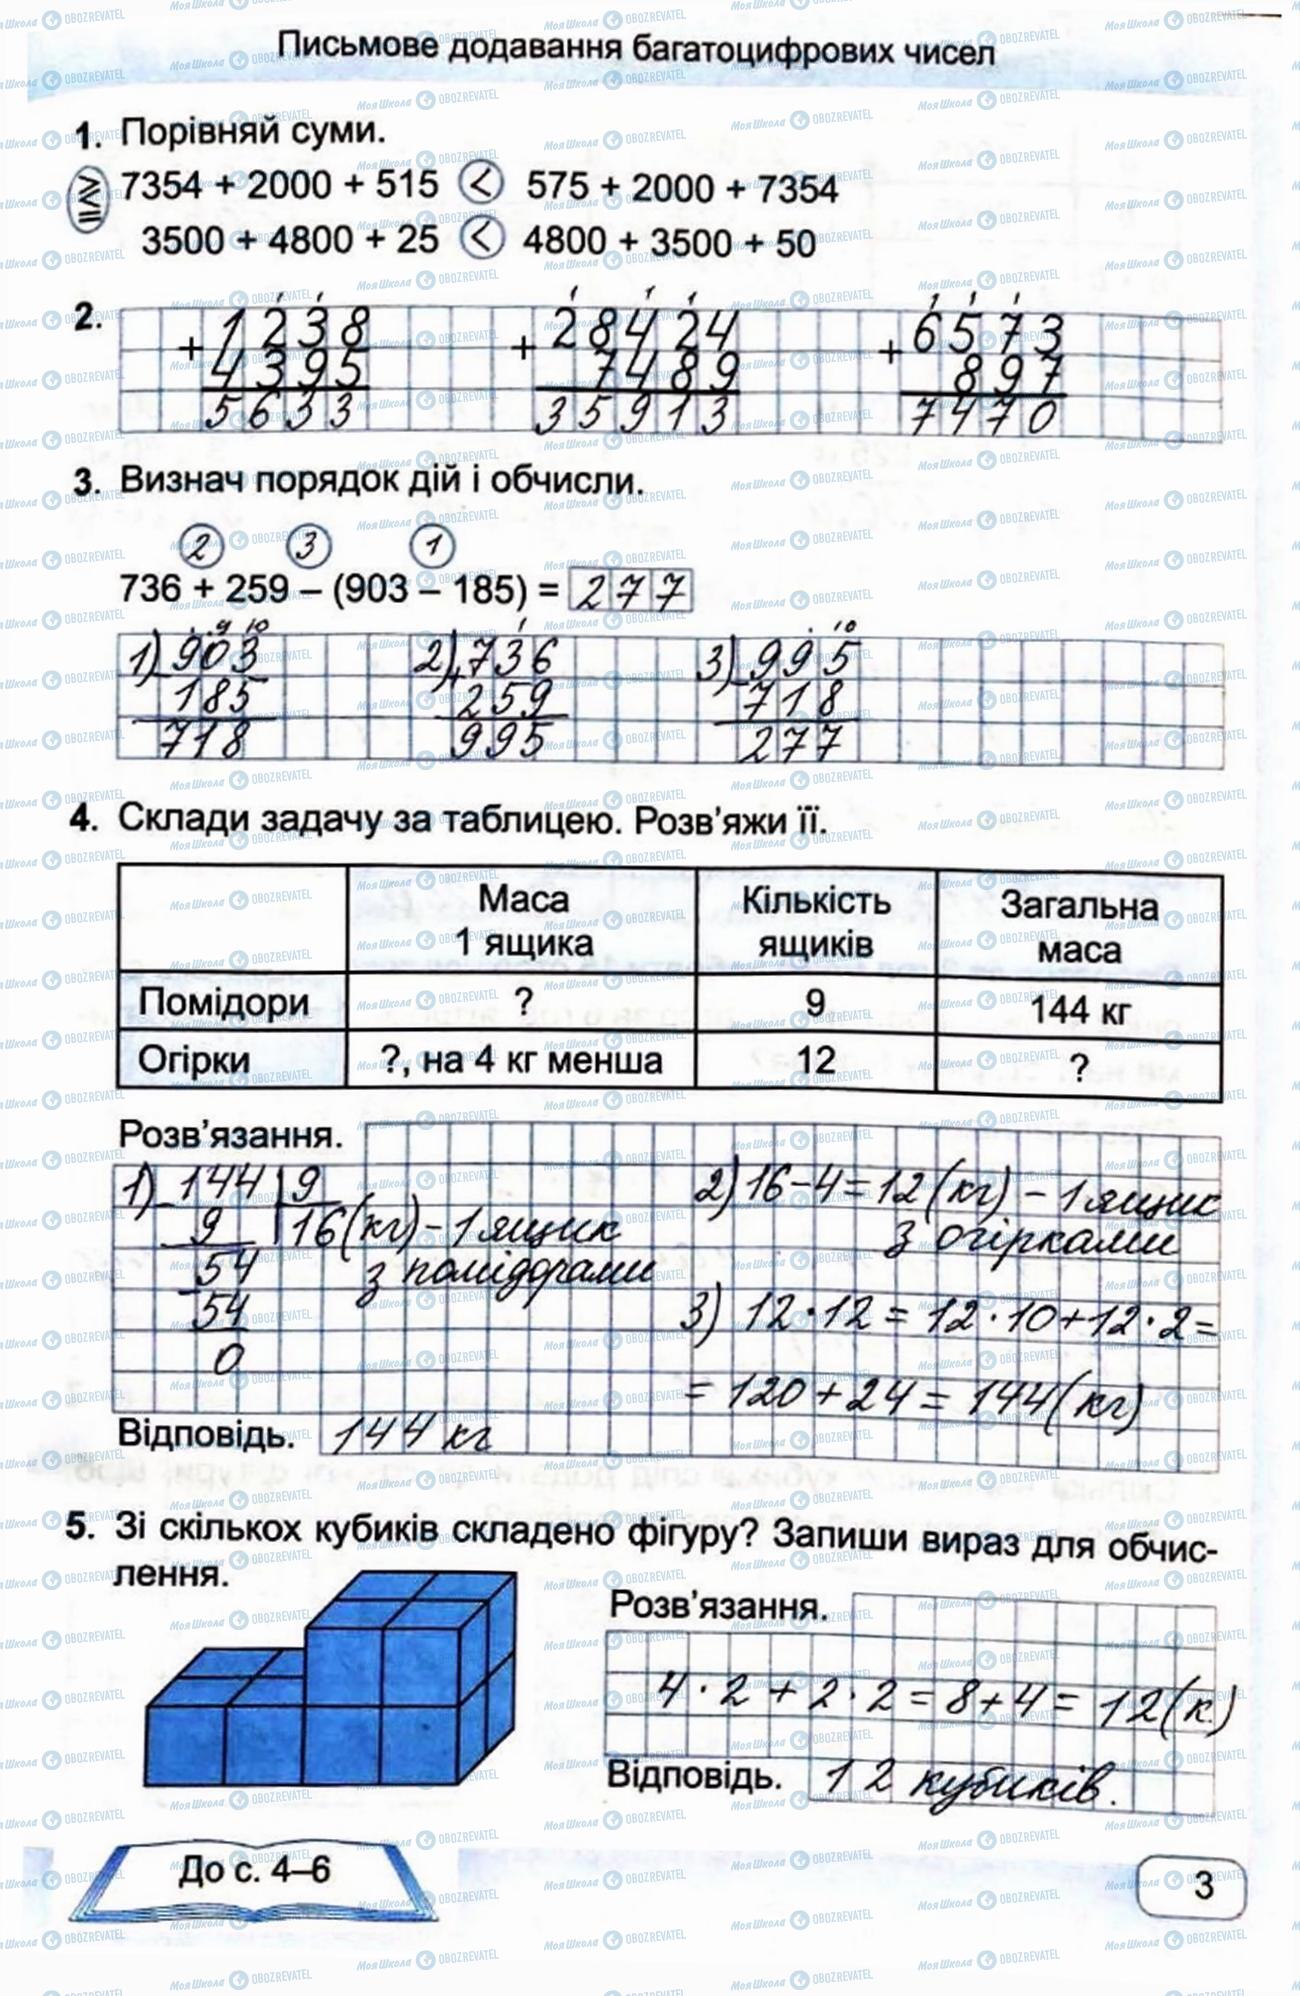 Письмове додавання багатоцифрових чисел
1. Порівняй суми.
7354 + 2000 + 515 < 575 + 2000 + 7354
3500 + 4800 + 25 < 4800 + 3500 + 50
2. + 1238 + 28424 + 6573
4395 7489 897
5633 35913 7470
3. Визнач порядок дій і обчисли.
2 3 1
736 + 259 – (903 – 185) = 277
1) 903 2) 736 3) 995
185 259 718
718 995 277
4. Склади задачу за таблицею. Розв'яжи її.
Маса 1 ящика Кількість ящиків Загальна маса
Помідори ? 9 144 кг
Огірки ?, на 4 кг менша 12 ?
Розв'язання.
1) 144 9 2) 16-4=12(кг) - 1 ящик
9 16(кг) - 1 ящик з огірками
54 з помідорами
54 3) 12·12 = 12·10+12·2=
0
= 120+24 = 144(кг)
Відповідь. 144 кг
5. Зі скількох кубиків складено фігуру? Запиши вираз для обчис-
лення.
Розв'язання.
4·2 + 2·2 = 8+4 = 12(к.)
Відповідь. 12 кубиків.
До с. 4–6
3
МояШкола OBOZREVATEL